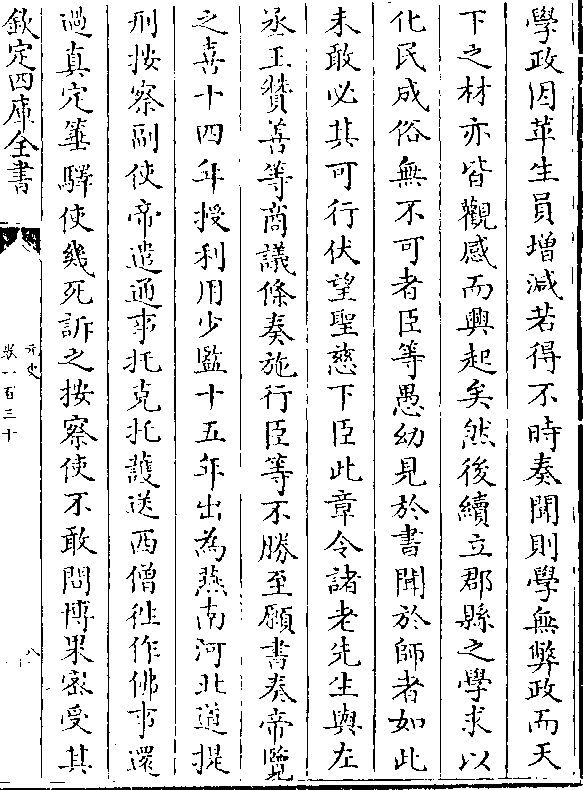 學政因革生員增減若得不時奏聞則學無弊政而天
下之材亦皆觀感而興起矣然後續立郡縣之學求以
化民成俗無不可者臣等愚幼見於書聞於師者如此
未敢必其可行伏望聖慈下臣此章令諸老先生與左
丞王贊善等商議條奏施行臣等不勝至願書奏帝覽
之喜十四年授利用少監十五年出為燕南河北道提
刑按察副使帝遣通事托克托護送西僧徃作佛事還
過真定箠驛使幾死訴之按察使不敢問博果密受其
欽定四庫全書
元史
卷一百三十
八